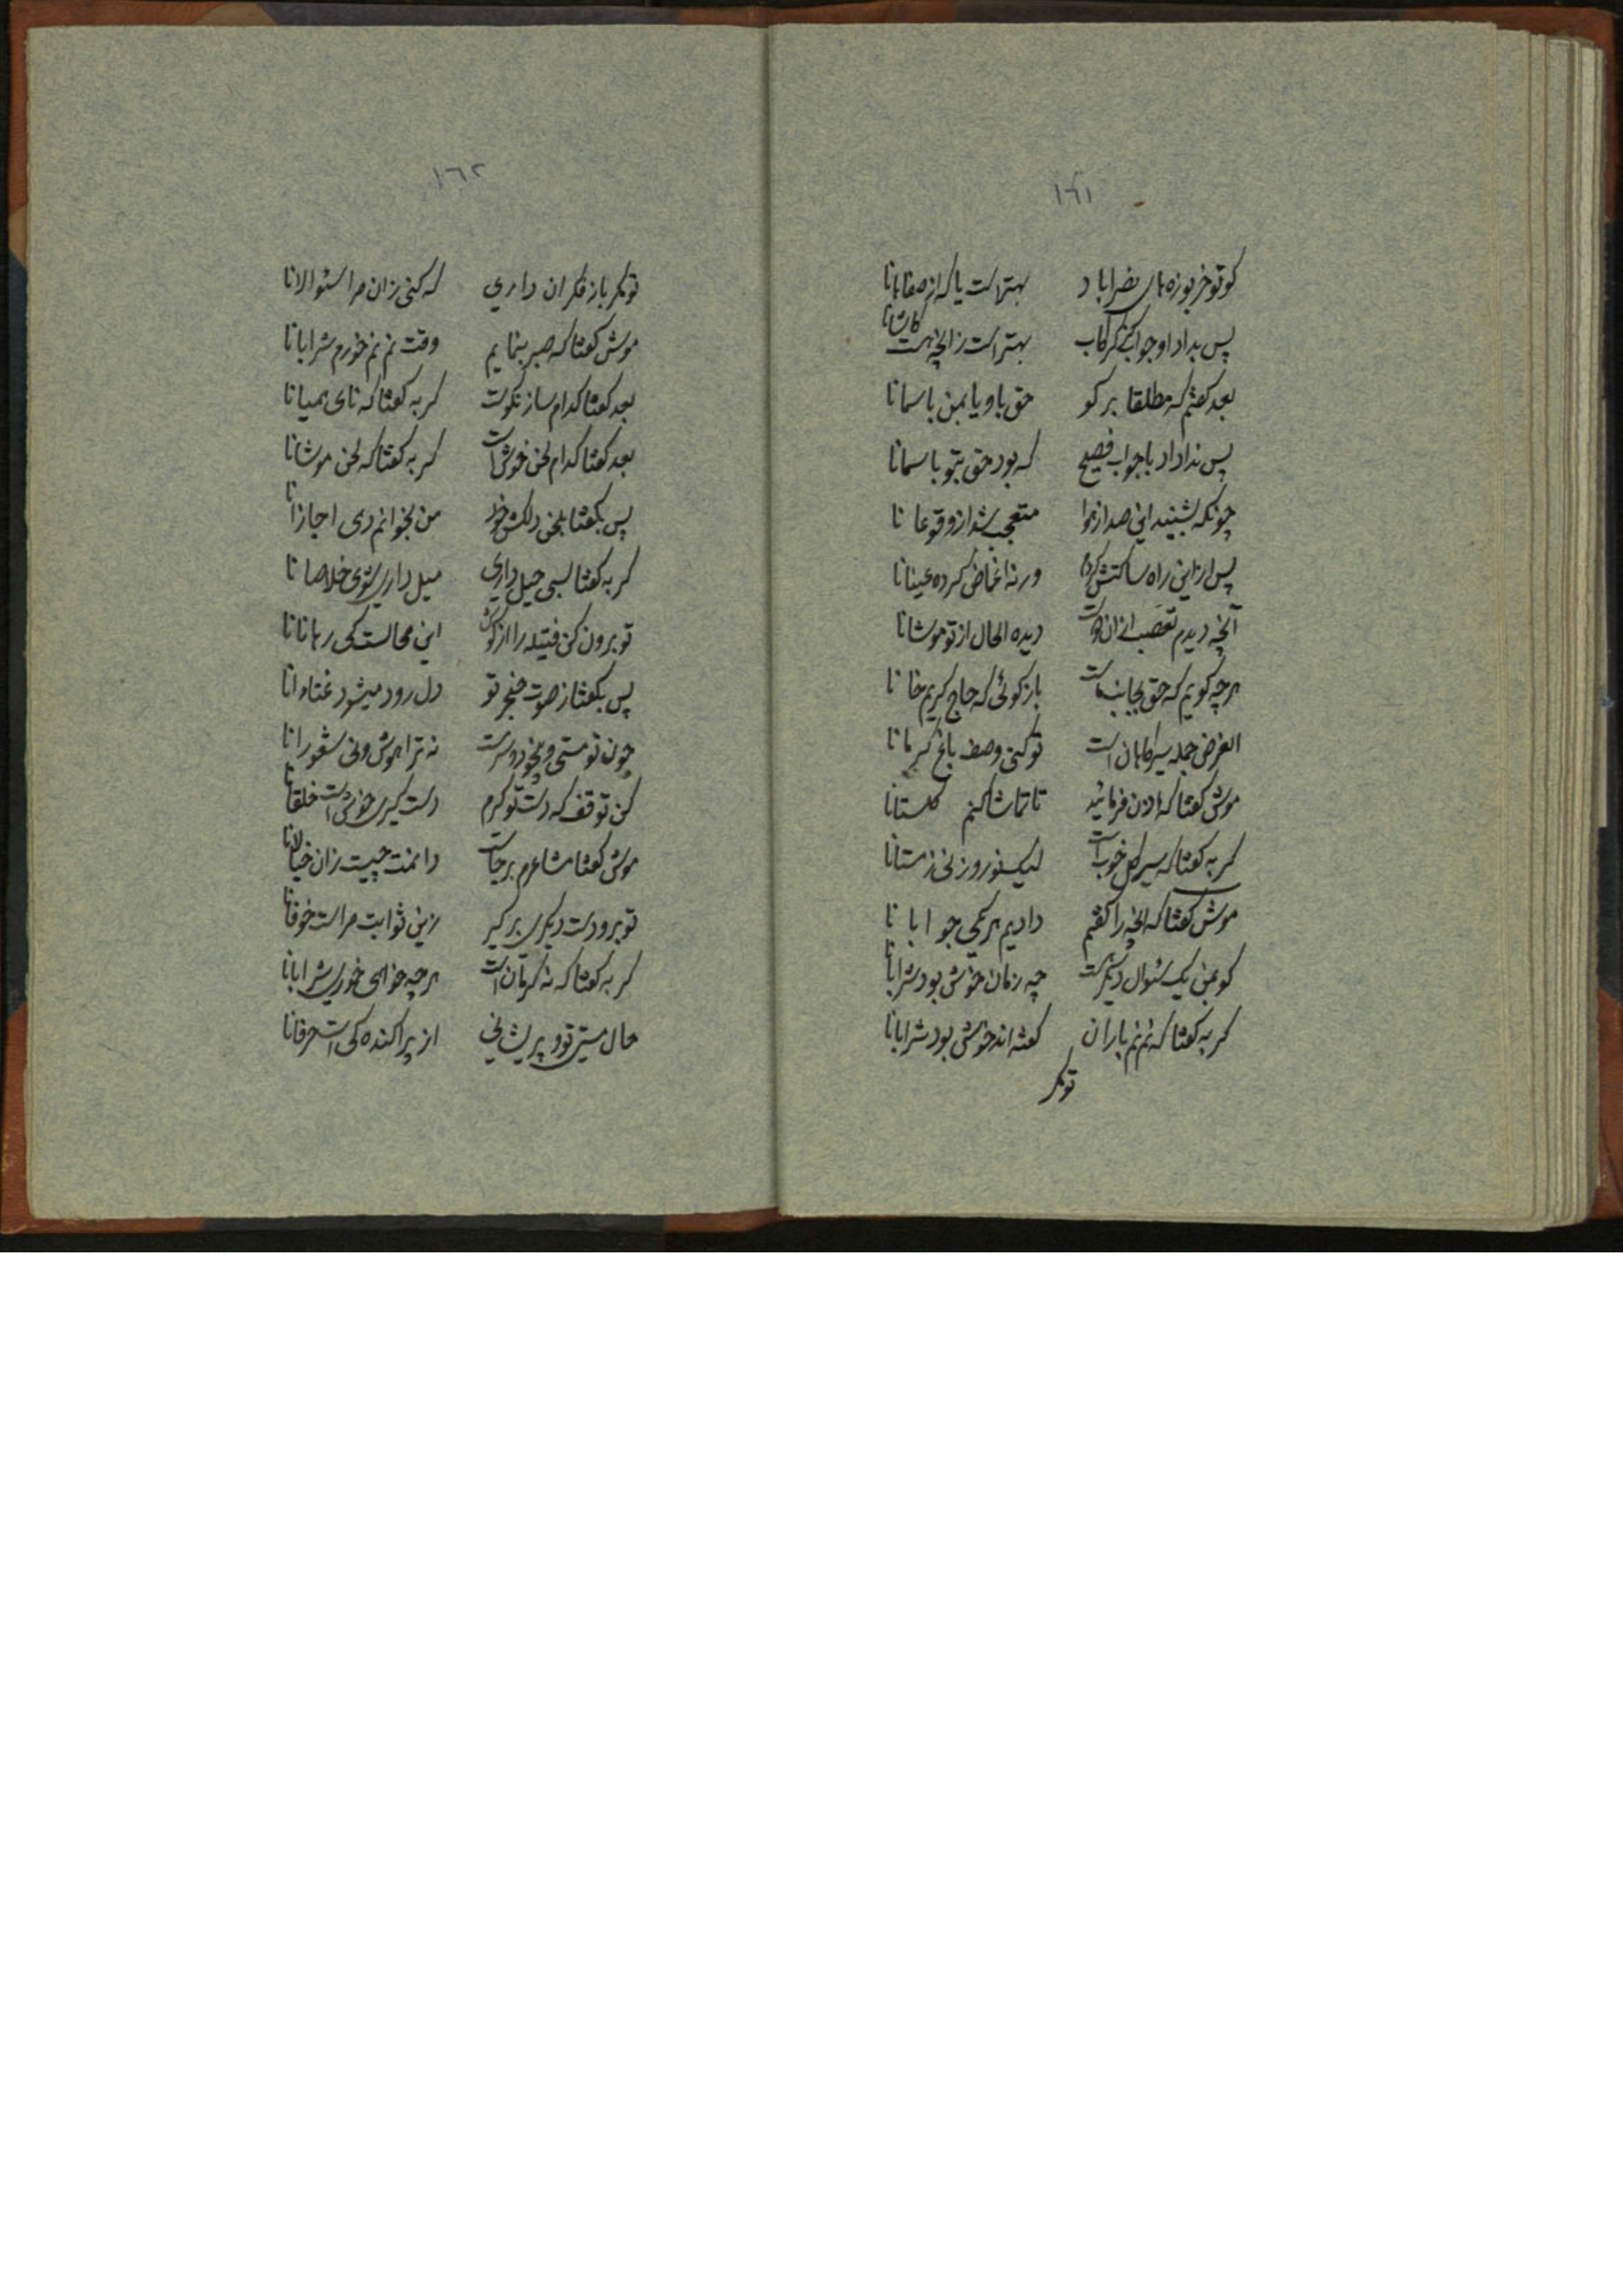 ١٦١
کو تو خربوزه‌های نصراباد بهتر است یا که از صفاهانا
پس بداد او جواب کز کرکاب بهتر است زانچه هست کاشانا
بعد کفتم که مطلقا بر کو حق باو یا بمن باسمانا
پس ندا داد با جواب فصیح که بود حق بتو باسمانا
چونکه بشنید این صدا ز هوا متعجب شد از وقوعانا
پس از این راه ساکتش کرد ورنه اغماض کرده عینانا
آنچه دیدم تعصب دیده الحال از تو موشانا
هرچه کویم که حق بجانب ماست باز کوئی که حاج کریم خانا
الغرض جمله است تو کنی وصف باغ کرمانا
موش کفتا که اذن فرمائید تا تماشا کنم کلستانا
کربه کفتا که سیر کل خوبست لیک نوروز نی زمستانا
موش کفتا که انچه را کفتم دادیم هر یکی جوابانا
کو بمن یک سئوال دیکر هست چه زمان خوش بود شرابانا
کربه کفتا که نم نم باران کفته‌اند خوش بود شرابانا
تو مکر
١٦٢
تو مکر باز فکر ان داری که کنی زان مرا سئوالانا
موش کفتا که صبر بنمایم وقت نم نم خورم شرابانا
بعد کفتا کدام ساز نکوست کربه کفتا که نای همیانا
بعد کفتا کدام لحن خوش است کربه کفتا که لحن موشانا
پس بکفتا بلحن دلکش خود من بخوانم دی اجازانا
کربه کفتا بسی حیل داری میل داری شوی خلاصانا
تو برون کن فتیله را از کوش این محالست کی رهانانا
پس بکفتا ز صوت حنجر تو دل رود میشود غناوانا
چون تو مستی و بیخود و سرمست نه ترا هوش و نی شعورانا
کن توقف که دست تو کیرم دستکیری خوش است خلقانا
موش کفتا مشاعرم برجاست دامنت چیست زان خیالانا
تو برو دست دیکری بر کیر زین ثوابت مراست خوفانا
کربه کفتا که نه کرمان است هرچه خواهی خوری شرابانا
حال مستی تو و پریشانی از پراکنده کی است حرفانا